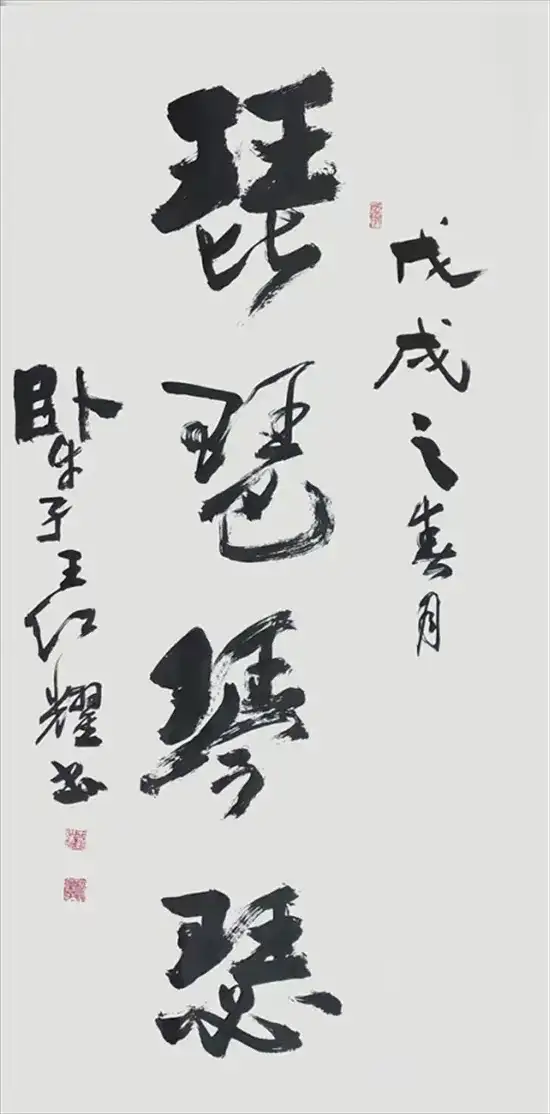 戊戌之春月
琵琶琴瑟
卧牛子王红耀书